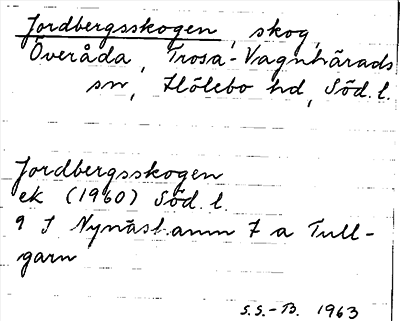 Jordbergsskogen, skog,
Överåda, Trosa-Vagnhärads
sn, Hölebo hd, Söd. l.
Jordbergsskogen
ek (1960) Söd. l.
9 I Nynäshamn 7 a Tull-
garn
S.S.-B. 1963